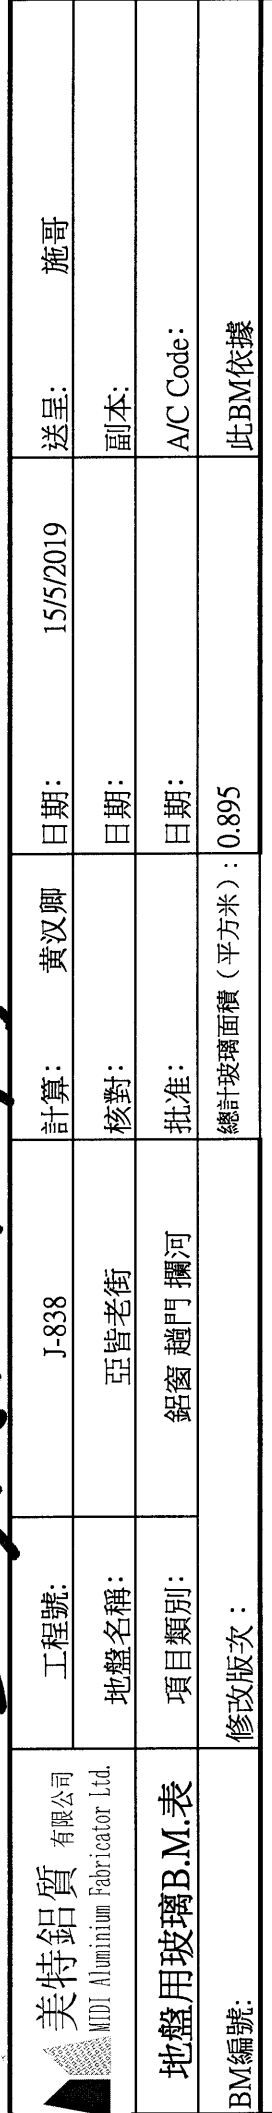 美特鋁質 有限公司
MIDI Aluminium Fabricator Ltd.
工程號: J-838 計算: 黄汉卿 日期: 15/5/2019 送呈: 施哥
地盤名稱: 亞皆老街 核對: 日期: 副本:
地盤用玻璃B.M.表
項目類別: 鋁窗 趟門 攔河 批准: 日期: A/C Code:
BM編號: 修改版次: 總計玻璃面積（平方米）: 0.895 此BM依據